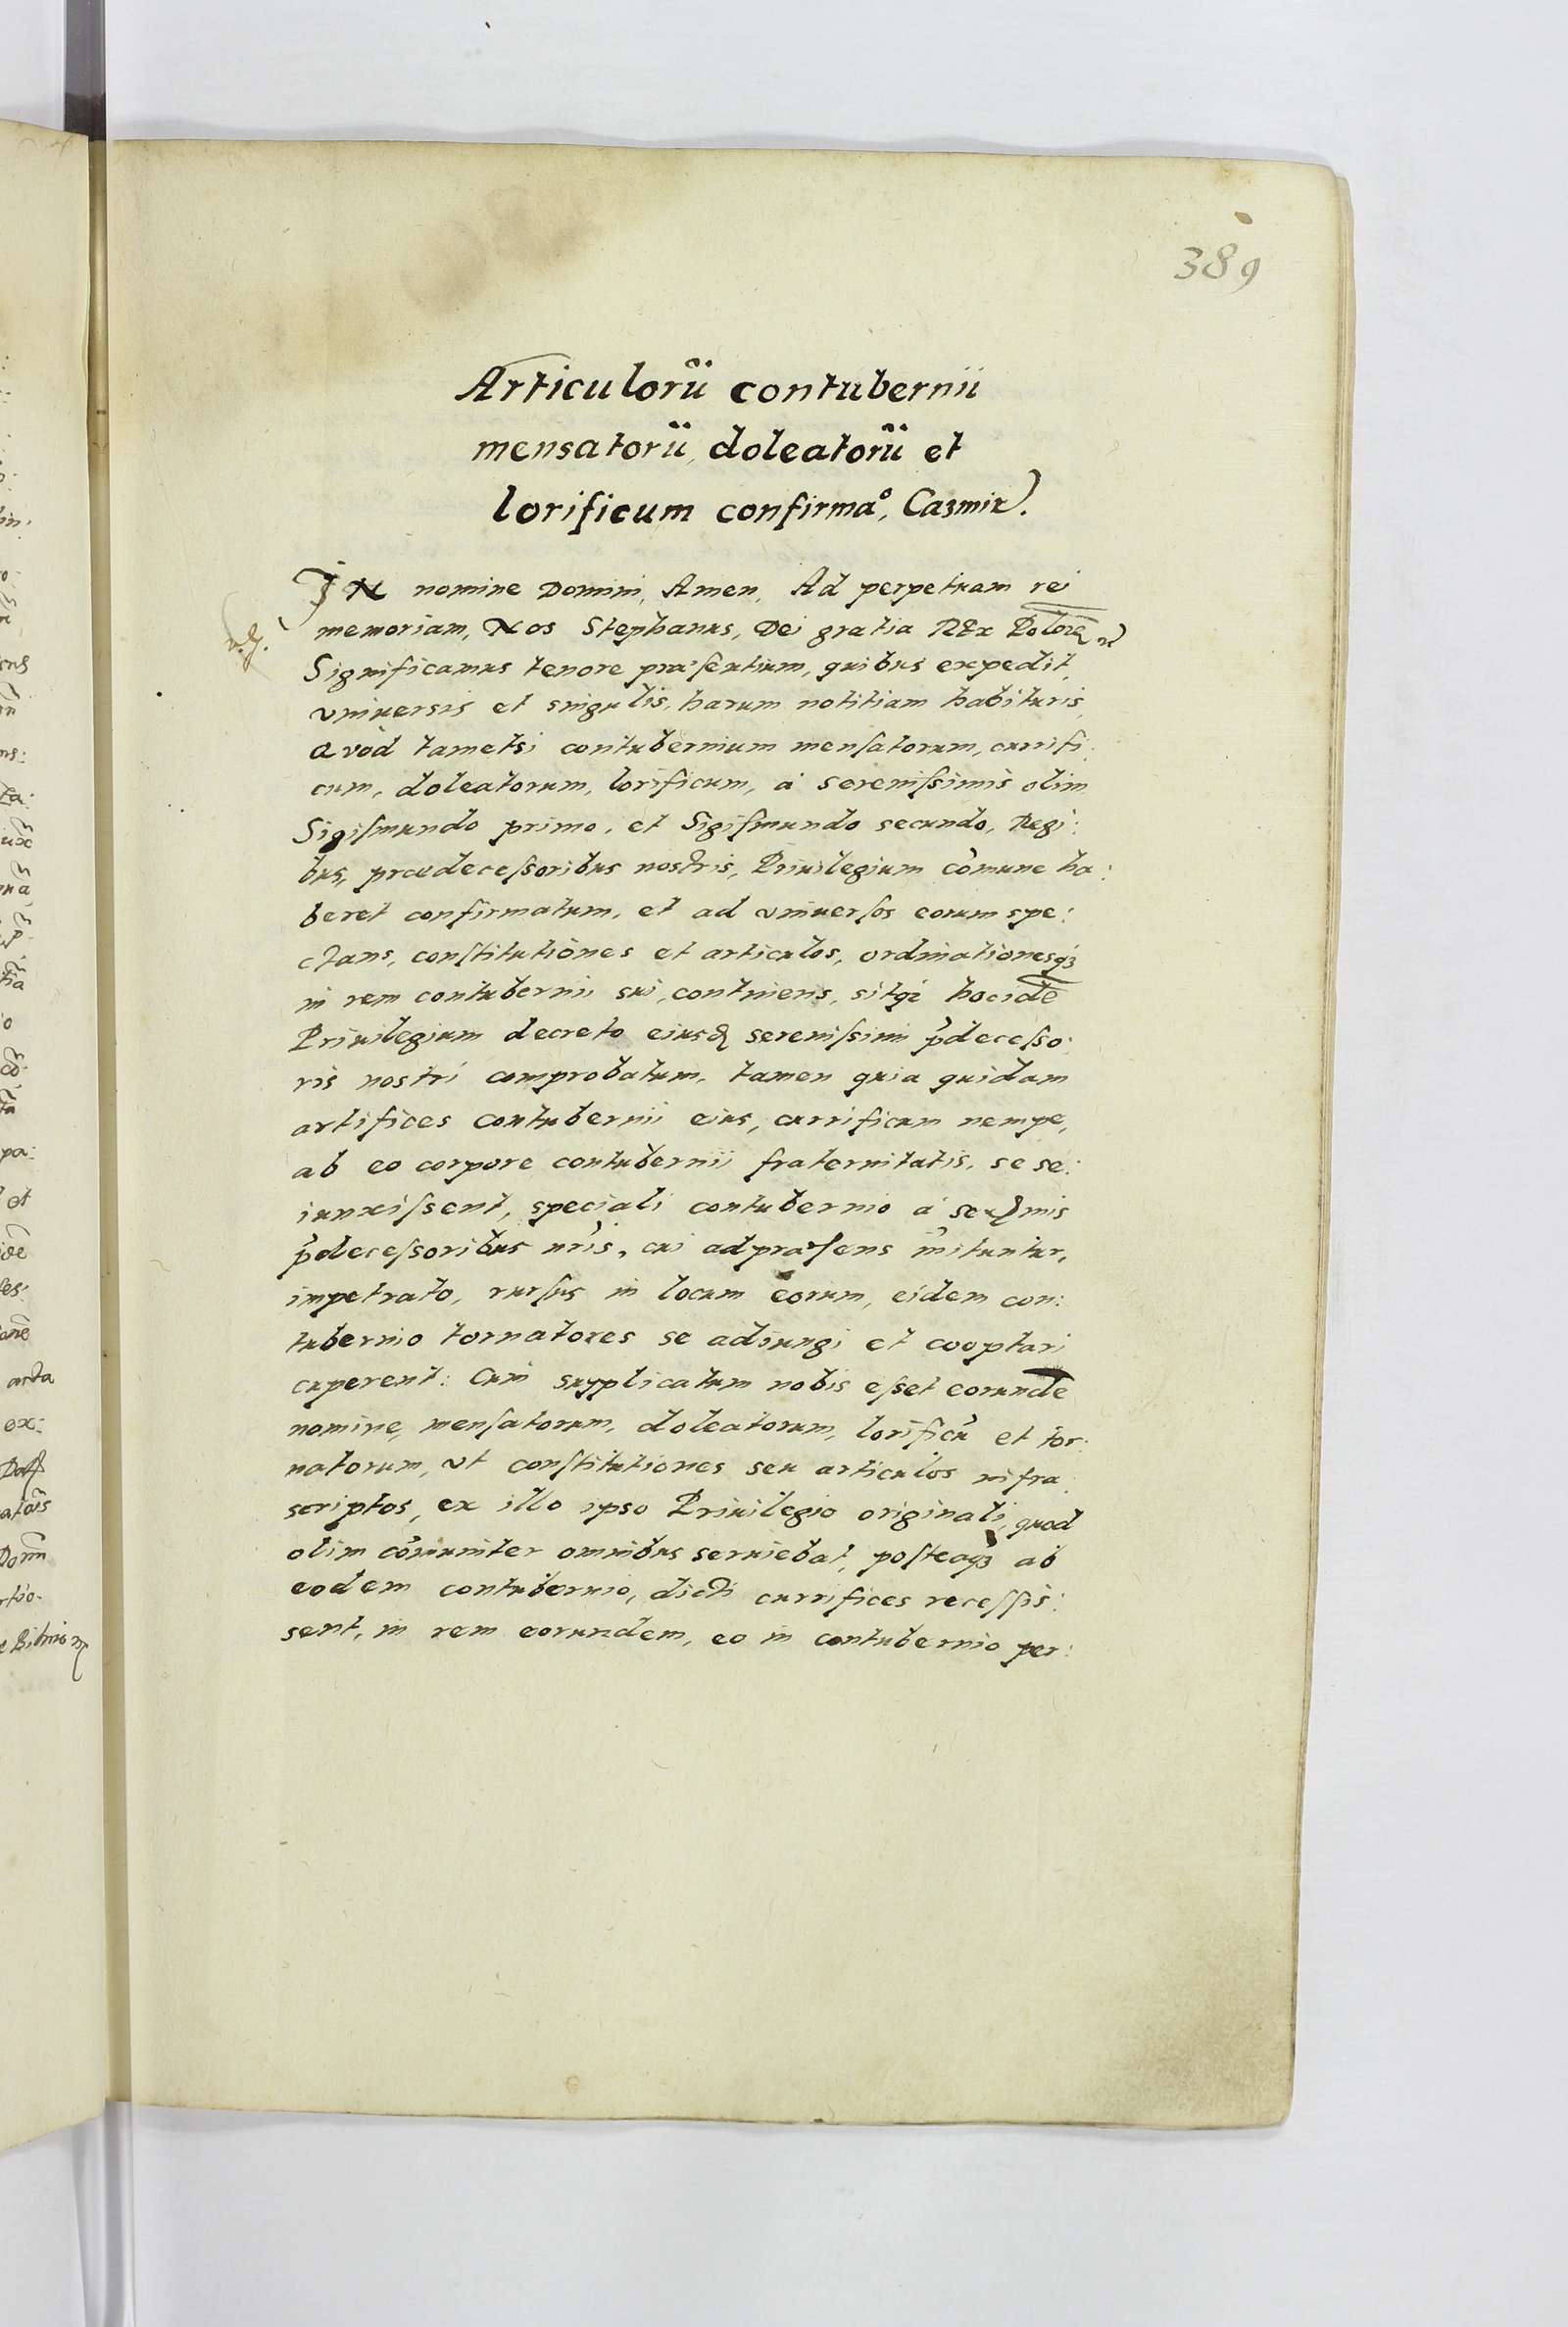 389
Articulorũ contubernii
mensatorũ, doleatorũ et
lorificum confirmaº, Cazmir.
IN nomine Domini, Amen, Ad perpetuam rei
memoriam, Nos Stephanus, Dei gratia REx
Significamus tenore præsentium, quibus expedit,
vniuersis et singulis, harum notitiam habituris,
Qvòd tametsi contubernium mensatorum, currifi:
cum, doleatorum, lorificum, à serenissimis olim
Sigismundo primo, et Sigismundo secundo, Regi:
bus, prædecessoribus nostris, Priuilegium cõmune ha:
beret confirmatum, et ad vniuersos eorum spe:
ctans, constitutiones et articulos, ordinationesqз
in rem contubernii sui, continens, sitqз hocidẽ
Priuilegium decreto eiusd serenissimi p̃decesso:
ris nostri comprobatum, tamen quia quidam
artifices contubernii eius, currificum nempe,
ab eo corpore contubernii fraternitatis, se se:
iunxissent, speciali contubernio à
p̃decessoribus nr̃is, cui ad præsens ĩnituntur,
impetrato, rursus in locum eorum, eidem con:
tubernio tornatores se adiungi et cooptari
cuperent: Cum supplicatum nobis esset eorundẽ
nomine, mensatorum, doleatorum, lorificũ et tor:
natorum, vt constitutiones seu articulos infra
scriptos, ex illo ipso Priuilegio originali, quod
olim cõmuniter omnibus seruiebat, posteaqз ab
eodem contubernio, dicti currifices recessis:
sent, in rem eorundem, eo in contubernio per: